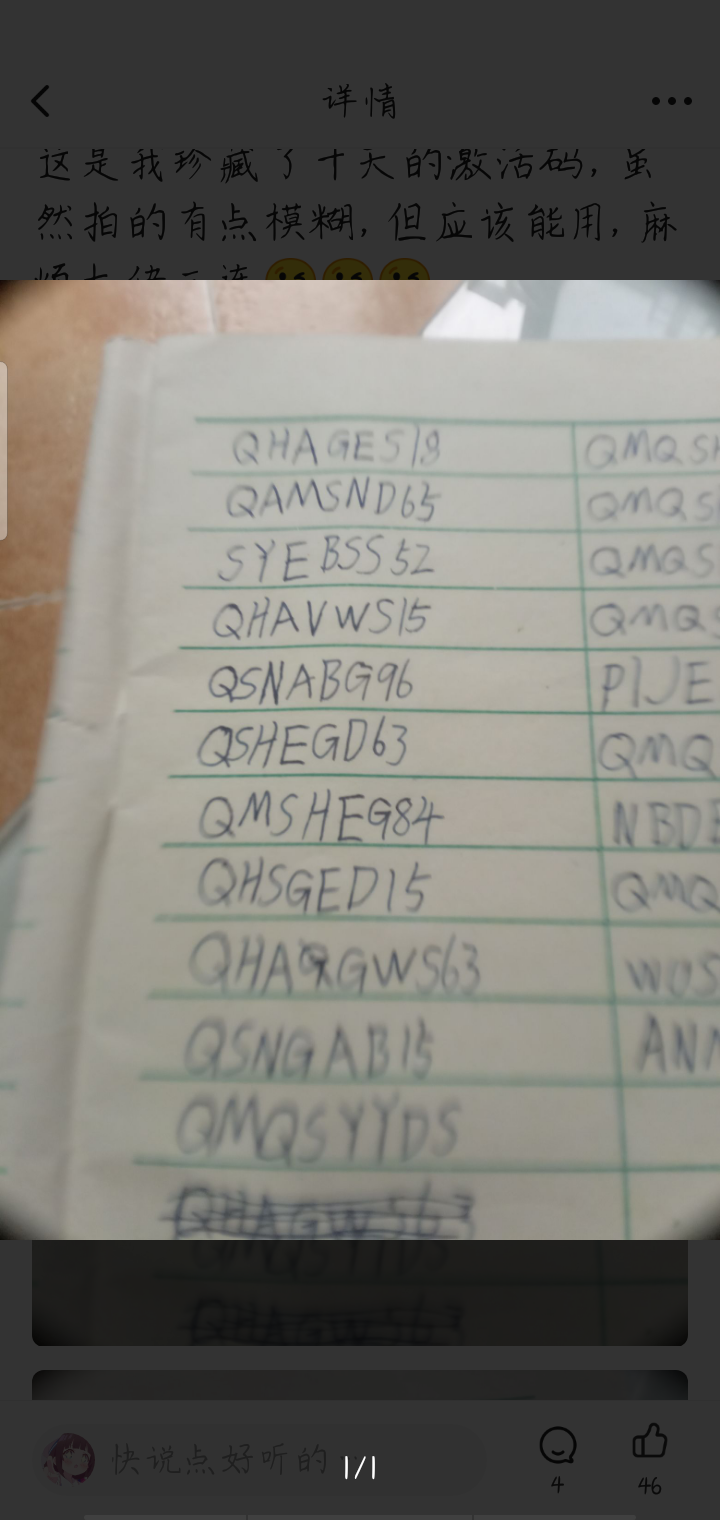 详情
这是我珍藏了十天的激活码,虽
然拍的有点模糊,但应该能用,麻
QHAGES18
QMQSH
QAMSND65
QMQS
SYEBSS52
QMQS
QHAVWS15
QMQS
QSNABG96
PIJE
QSHEGD63
QMQ
QMSHEG84
NBD
QHSGED15
QMQ
QHAGWS63
WUS
QSNGAB15
ANM
QMQSYYDS
快说点好听的
1/1
4
46